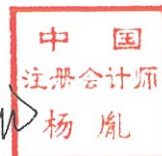 中国
注册会计师
杨胤